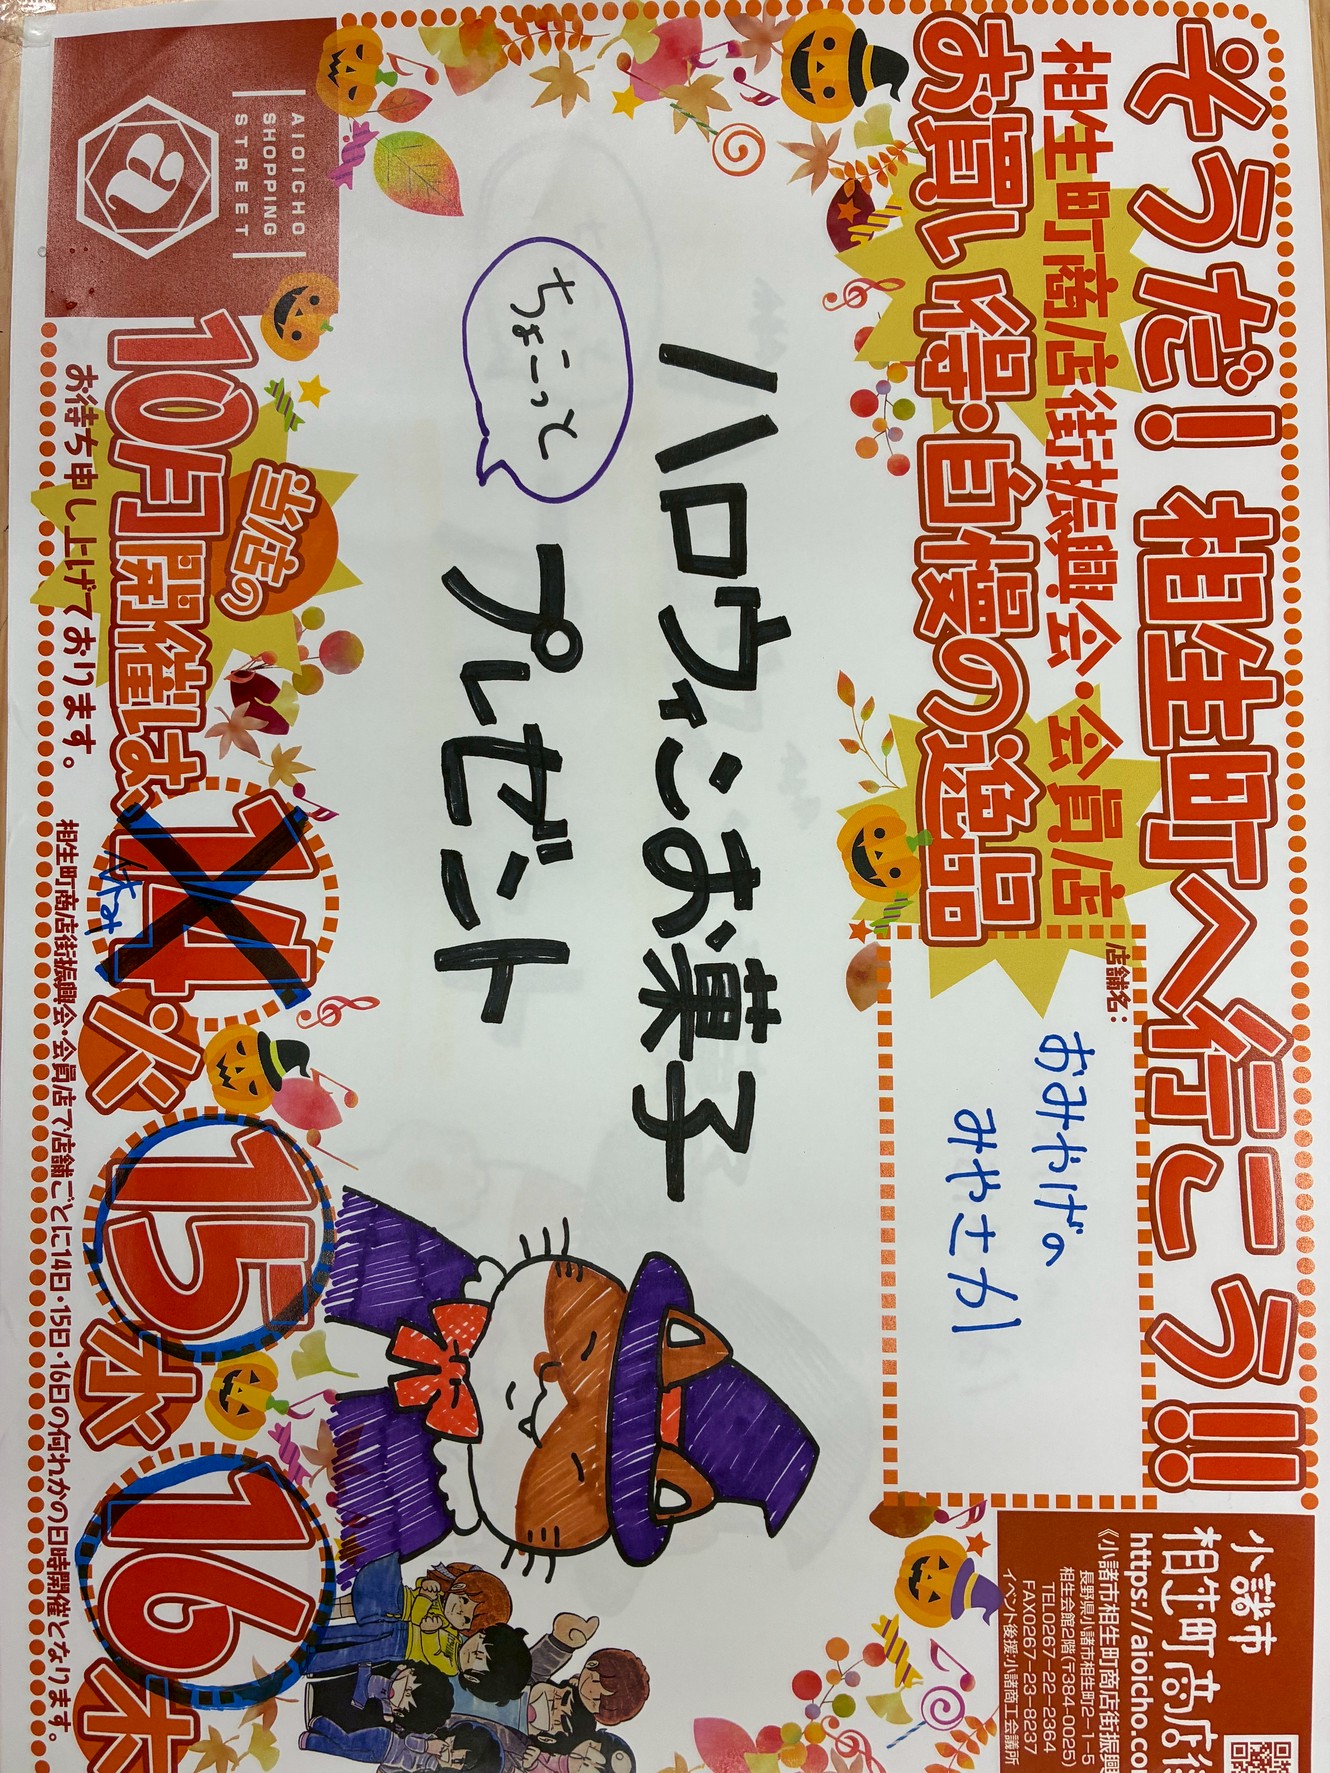 そうだ！相生町へ行こう!!
相生町商店街振興会・会員店
お買い得・自慢の逸品
店舗名：
おみやげの
みやさか
小諸市
相生町商店街
https://aioicho.co
《小諸市相生町商店街振興
長野県小諸市相生町2-1-5
相生会館2階(〒384-0025)
TEL0267-22-2364
FAX0267-23-8237
イベント後援:小諸商工会議所
ハロウィンお菓子
ちょこーっと
プレゼント
AIOICHO
SHOPPING
STREET
a
当店の
10月開催は、14火 15水 16木
やすみ
お待ち申し上げております。
相生町商店街振興会・会員店で店舗ごとに14日・15日・16日の何れかの日時開催となります。